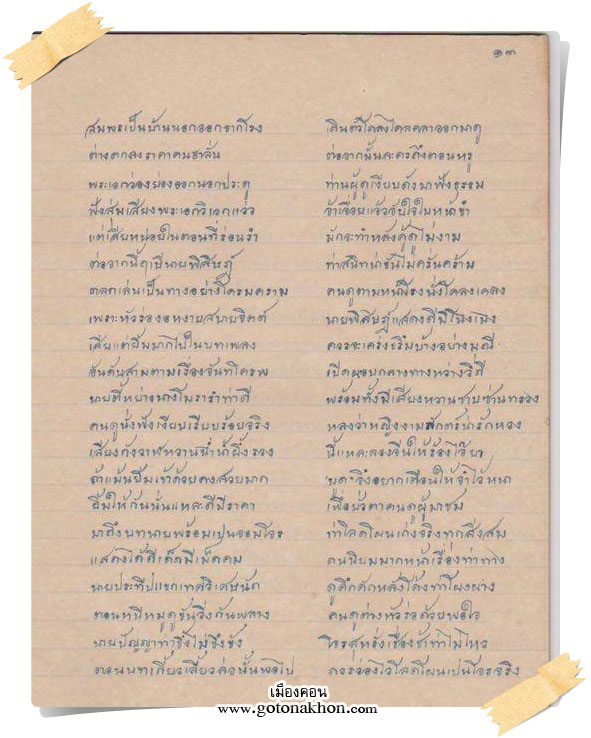 ๑๓
สมพรเป็นบ้านนอกออกจากโรง เดินตัวโคลงไคลคลาออกมาดู
ต่างตกลงราคาคนชาลัน ต่อจากนั้นละครถึงตอนหรู
พระเอกว่องย่องออกนอกประตู ท่านผู้ดูเงียบดังมาฟังธรรม
ฟังสุ่มเสียงพระเอกวิเวกแว่ว จ้าเจื่อยแจ้วจับใจใบหน้าขำ
แต่เสียหน่อยในตอนที่ร่อนรำ มักจะทำหลังคู้ดูไม่งาม
ต่อจากนี้ถึงนายพิสิษฐ์ ท่าสนิทน่าขันไม่ครั่นคร้าม
ตลกเล่นเป็นทางอย่างโครมคราม คนดูตามหน้าโรงนั่งโคลงเคลง
เพราะหัวร่องอหงายสบายจิตต์ นายพิสิษฐ์แสดงดีมีโฉงเฉง
เสียแต่ยิ้มมากไปในบทเพลง ควรจะเคร่งขรึมบ้างอย่างมุณี
อันดับสามตามเรื่องจันทโครพ เปิดผอบกลางทางหว่างวิถี
นางโมรารำท่าดี พร้อมทั้งมีเสียงหวานซาบซ่านทรวง
คนดูนั่งฟังเงียบเรียบร้อยจริง หลงว่าหญิงงามน่ารักหวง
เสียงกังวาฬหวานฉ่ำน้ำผึ้งรวง นี้แหละลองจีนให้ร้อง
ถ้าแม้นยิ้มเข้าด้วยคงสวยมาก จึงอยากเตือนให้จำไว้หนา
ยิ้มให้กันนั่นแหละดีมีราคา เพื่อยั่วตาคนดูผู้มาชม
มาถึงบทนายพร้อมเป็นจอมโจร ท่าโลดโผนเก่งจริงทุกสิ่งสม
แสดงได้ดีเด็ดมีเม็ดคม คนนิยมมากหน้าเรื่องท่าทาง
นายประทีปแขกเทศวิเศษนัก ดูคึกคักหลังโก่งทำโผงผาง
ตอนหนีหมูดูขันวิ่งกันพลาง คนดูต่างหัวร่อด้วยพอใจ
นายปัญญาท่าขึงไม่ขึงขัง โจรสุหรั่งเรื่องช้าทำไม่ไหว
ตอนบทเกี้ยวเสี้ยวคอนั้นพอไป ควรว่องไวโลดโผนเป็นโจรจริง
เมืองคอน
www.gotonakhon.com